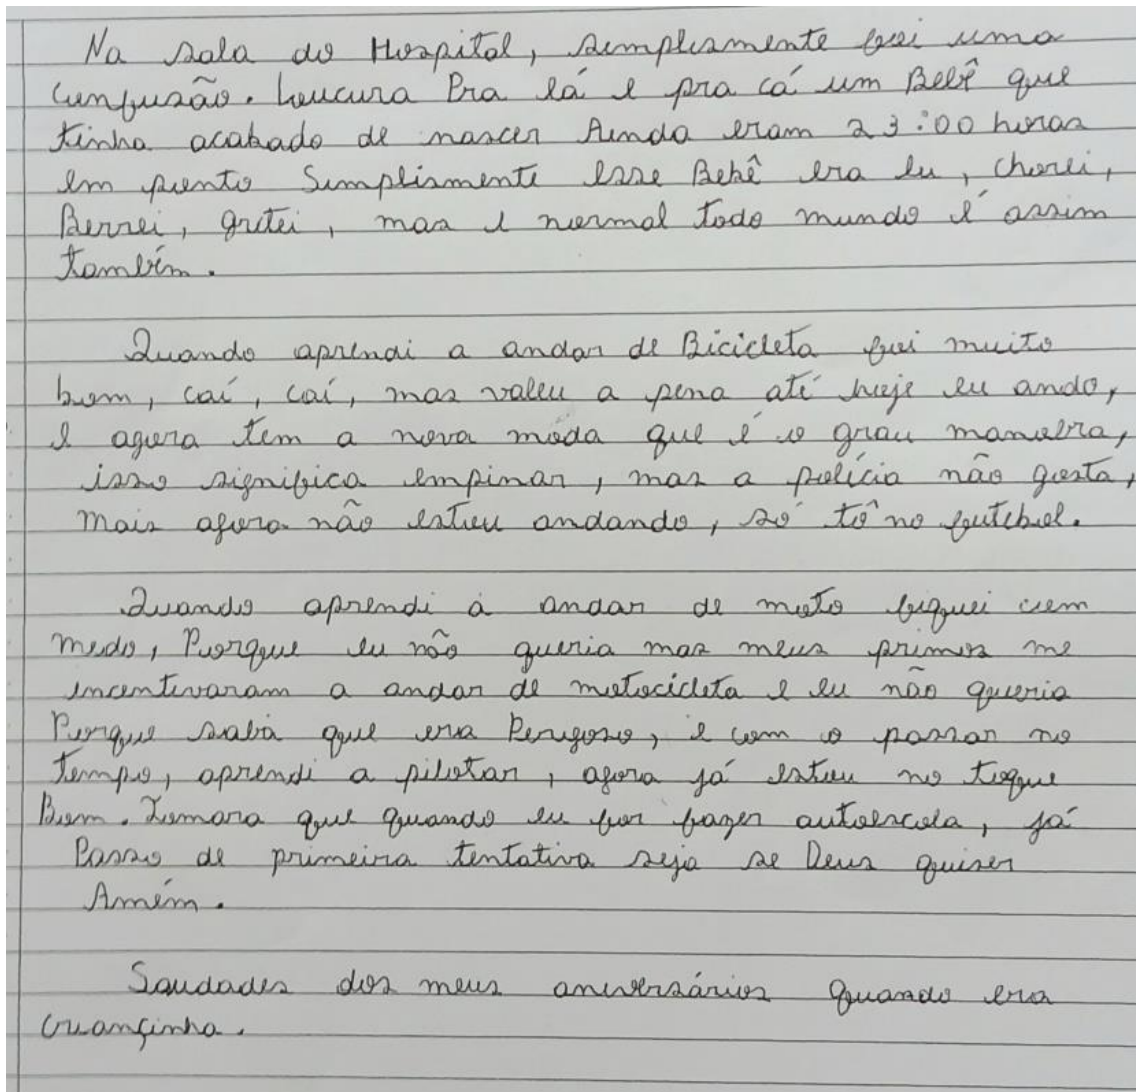 Na sala do Hospital, simplismente foi uma
confusão. Loucura Pra lá e pra cá um Bebê que
tinha acabado de nascer Ainda eram 23:00 horas
em ponto Simplismente esse Bebê era eu, chorei,
Berrei, gritei, mas e normal todo mundo é assim
também.
Quando aprendi a andar de Bicicleta foi muito
bom, caí, caí, mas valeu a pena até hoje eu ando,
e agora tem a nova moda que é o grau manobra,
isso significa empinar, mas a polícia não gosta,
Mais agora não estou andando, só tô no futebol.
Quando aprendi à andar de moto fiquei com
medo, Porque eu não queria mas meus primos me
incentivaram a andar de motocicleta e eu não queria
Porque sabia que era Perigoso, e com o passar no
tempo, aprendi a pilotar, agora já estou no toque
Bom. Tomara que quando eu for fazer autoescola, já
Passo de primeira tentativa seja se Deus quiser
Amém.
Saudades dos meus aniversários quando era
criançinha.